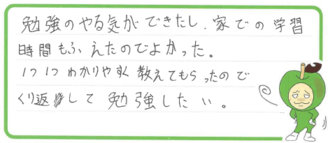 勉強のやる気ができたし、家での学習
時間もふえたのでよかった。
1つ1つわかりやすく教えてもらったので
くり返して勉強したい。